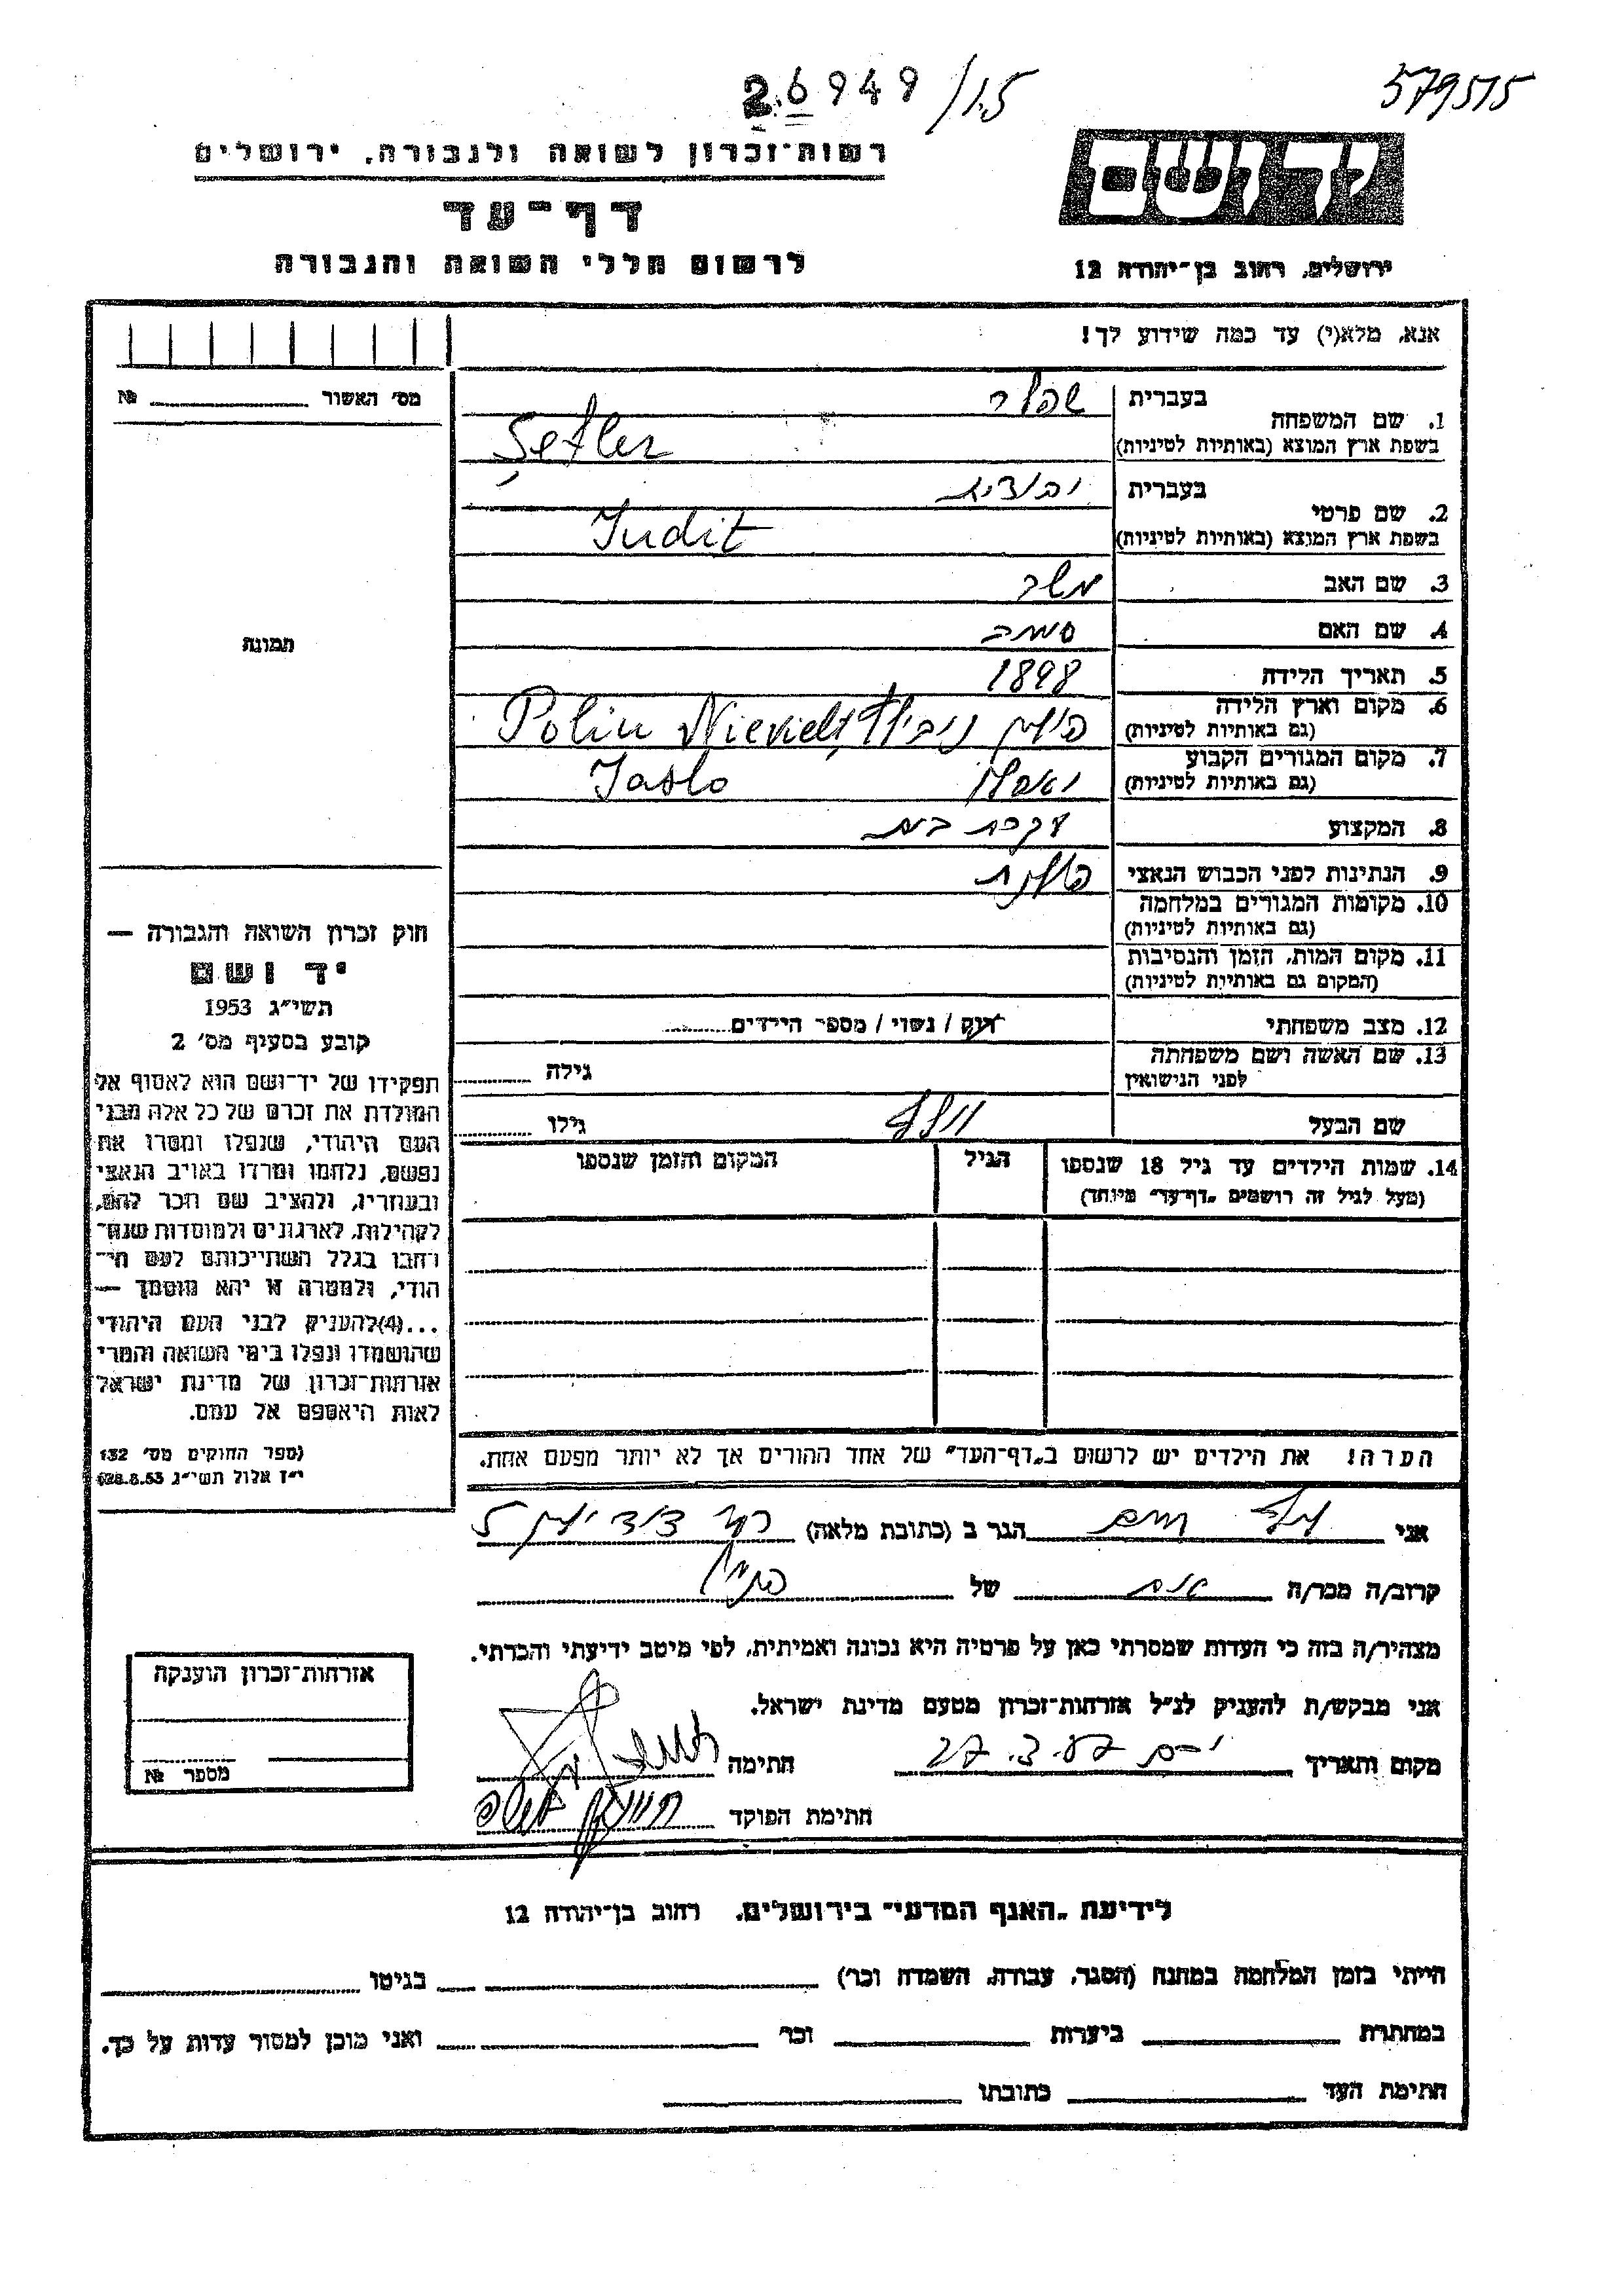 26949/15
579515
רשות־זכרון לשואה ולגבורה, ירושלים
דף־עד
לרשום חללי השואה והגבורה
יד ושם
ירושלים, רחוב בן־יהודה 12
אנא, מלא(י) עד כמה שידוע לך!
מס׳ האשור №
תמונה
1. שם המשפחה
בעברית
בשפת ארץ המוצא (באותיות לטיניות)
Šefler
2. שם פרטי
בעברית יהודית
בשפת ארץ המוצא (באותיות לטיניות)
Judit
3. שם האב משה
4. שם האם
5. תאריך הלידה 1898
6. מקום וארץ הלידה
(גם באותיות לטיניות)
פולין Polin
7. מקום המגורים הקבוע
(גם באותיות לטיניות)
יאסלו Jaslo
8. המקצוע עקרת בית
9. הנתינות לפני הכבוש הנאצי פולנית
10. מקומות המגורים במלחמה
(גם באותיות לטיניות)
11. מקום המות, הזמן והנסיבות
(המקום גם באותיות לטיניות)
12. מצב משפחתי רווק / נשוי / מספר הילדים
13. שם האשה ושם משפחתה
לפני הנישואין
גילה
שם הבעל וולף גילו
14. שמות הילדים עד גיל 18 שנספו
(מעל לגיל זה רושמים „דף־עד״ מיוחד)
הגיל
המקום והזמן שנספו
הערה! את הילדים יש לרשום ב„דף־העד״ של אחד ההורים אך לא יותר מפעם אחת.
חוק זכרון השואה והגבורה —
יד ושם
תשי״ג 1953
קובע בסעיף מס׳ 2
תפקידו של יד־ושם הוא לאסוף אל
המולדת את זכרם של כל אלה מבני
העם היהודי, שנפלו ומסרו את
נפשם, נלחמו ומרדו באויב הנאצי
ובעוזריו, ולהציב שם וזכר להם,
לקהילות, לארגונים ולמוסדות שנח־
רחבו בגלל השתייכותם לעם הי־
הודי, ולמטרה זו יהא מוסמך —
...(4)להעניק לבני העם היהודי
שהושמדו ונפלו בימי השואה והמרי
אזרחות־זכרון של מדינת ישראל
לאות היאספם אל עמם.
(ספר החוקים מס׳ 132
י״ז אלול תשי״ג 28.8.53)
אני
הגר ב (כתובת מלאה)
קרוב/ה מכר/ה של
מצהיר/ה בזה כי העדות שמסרתי כאן על פרטיה היא נכונה ואמיתית, לפי מיטב ידיעתי והכרתי.
אני מבקש/ת להעניק לנ״ל אזרחות־זכרון מטעם מדינת ישראל.
מקום ותאריך 27.3.57 חתימה
חתימת הפוקד
אזרחות־זכרון הוענקה
מספר №
לידיעת „האגף המדעי״ בירושלים, רחוב בן־יהודה 12
הייתי בזמן המלחמה במחנה (הסגר, עבודה, השמדה וכו׳) בגיטו
במחתרת ביערות וכו׳ ואני מוכן למסור עדות על כך.
חתימת העד כתובתו